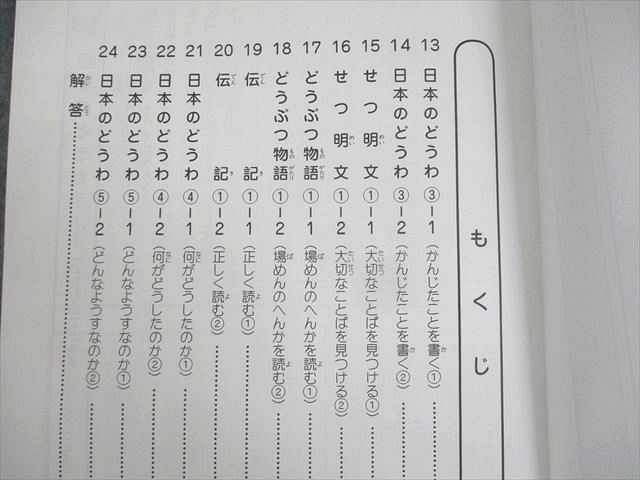 もくじ
13 日本のどうわ③-1(かんじたことを書く①)
14 日本のどうわ③-2(かんじたことを書く②)
15 せつ明文①-1(大切なことばを見つける①)
16 せつ明文①-2(大切なことばを見つける②)
17 どうぶつ物語①-1(場めんのへんかを読む①)
18 どうぶつ物語①-2(場めんのへんかを読む②)
19 伝記①-1(正しく読む①)
20 伝記①-2(正しく読む②)
21 日本のどうわ④-1(何がどうしたのか①)
22 日本のどうわ④-2(何がどうしたのか②)
23 日本のどうわ⑤-1(どんなようすなのか①)
24 日本のどうわ⑤-2(どんなようすなのか②)
解答